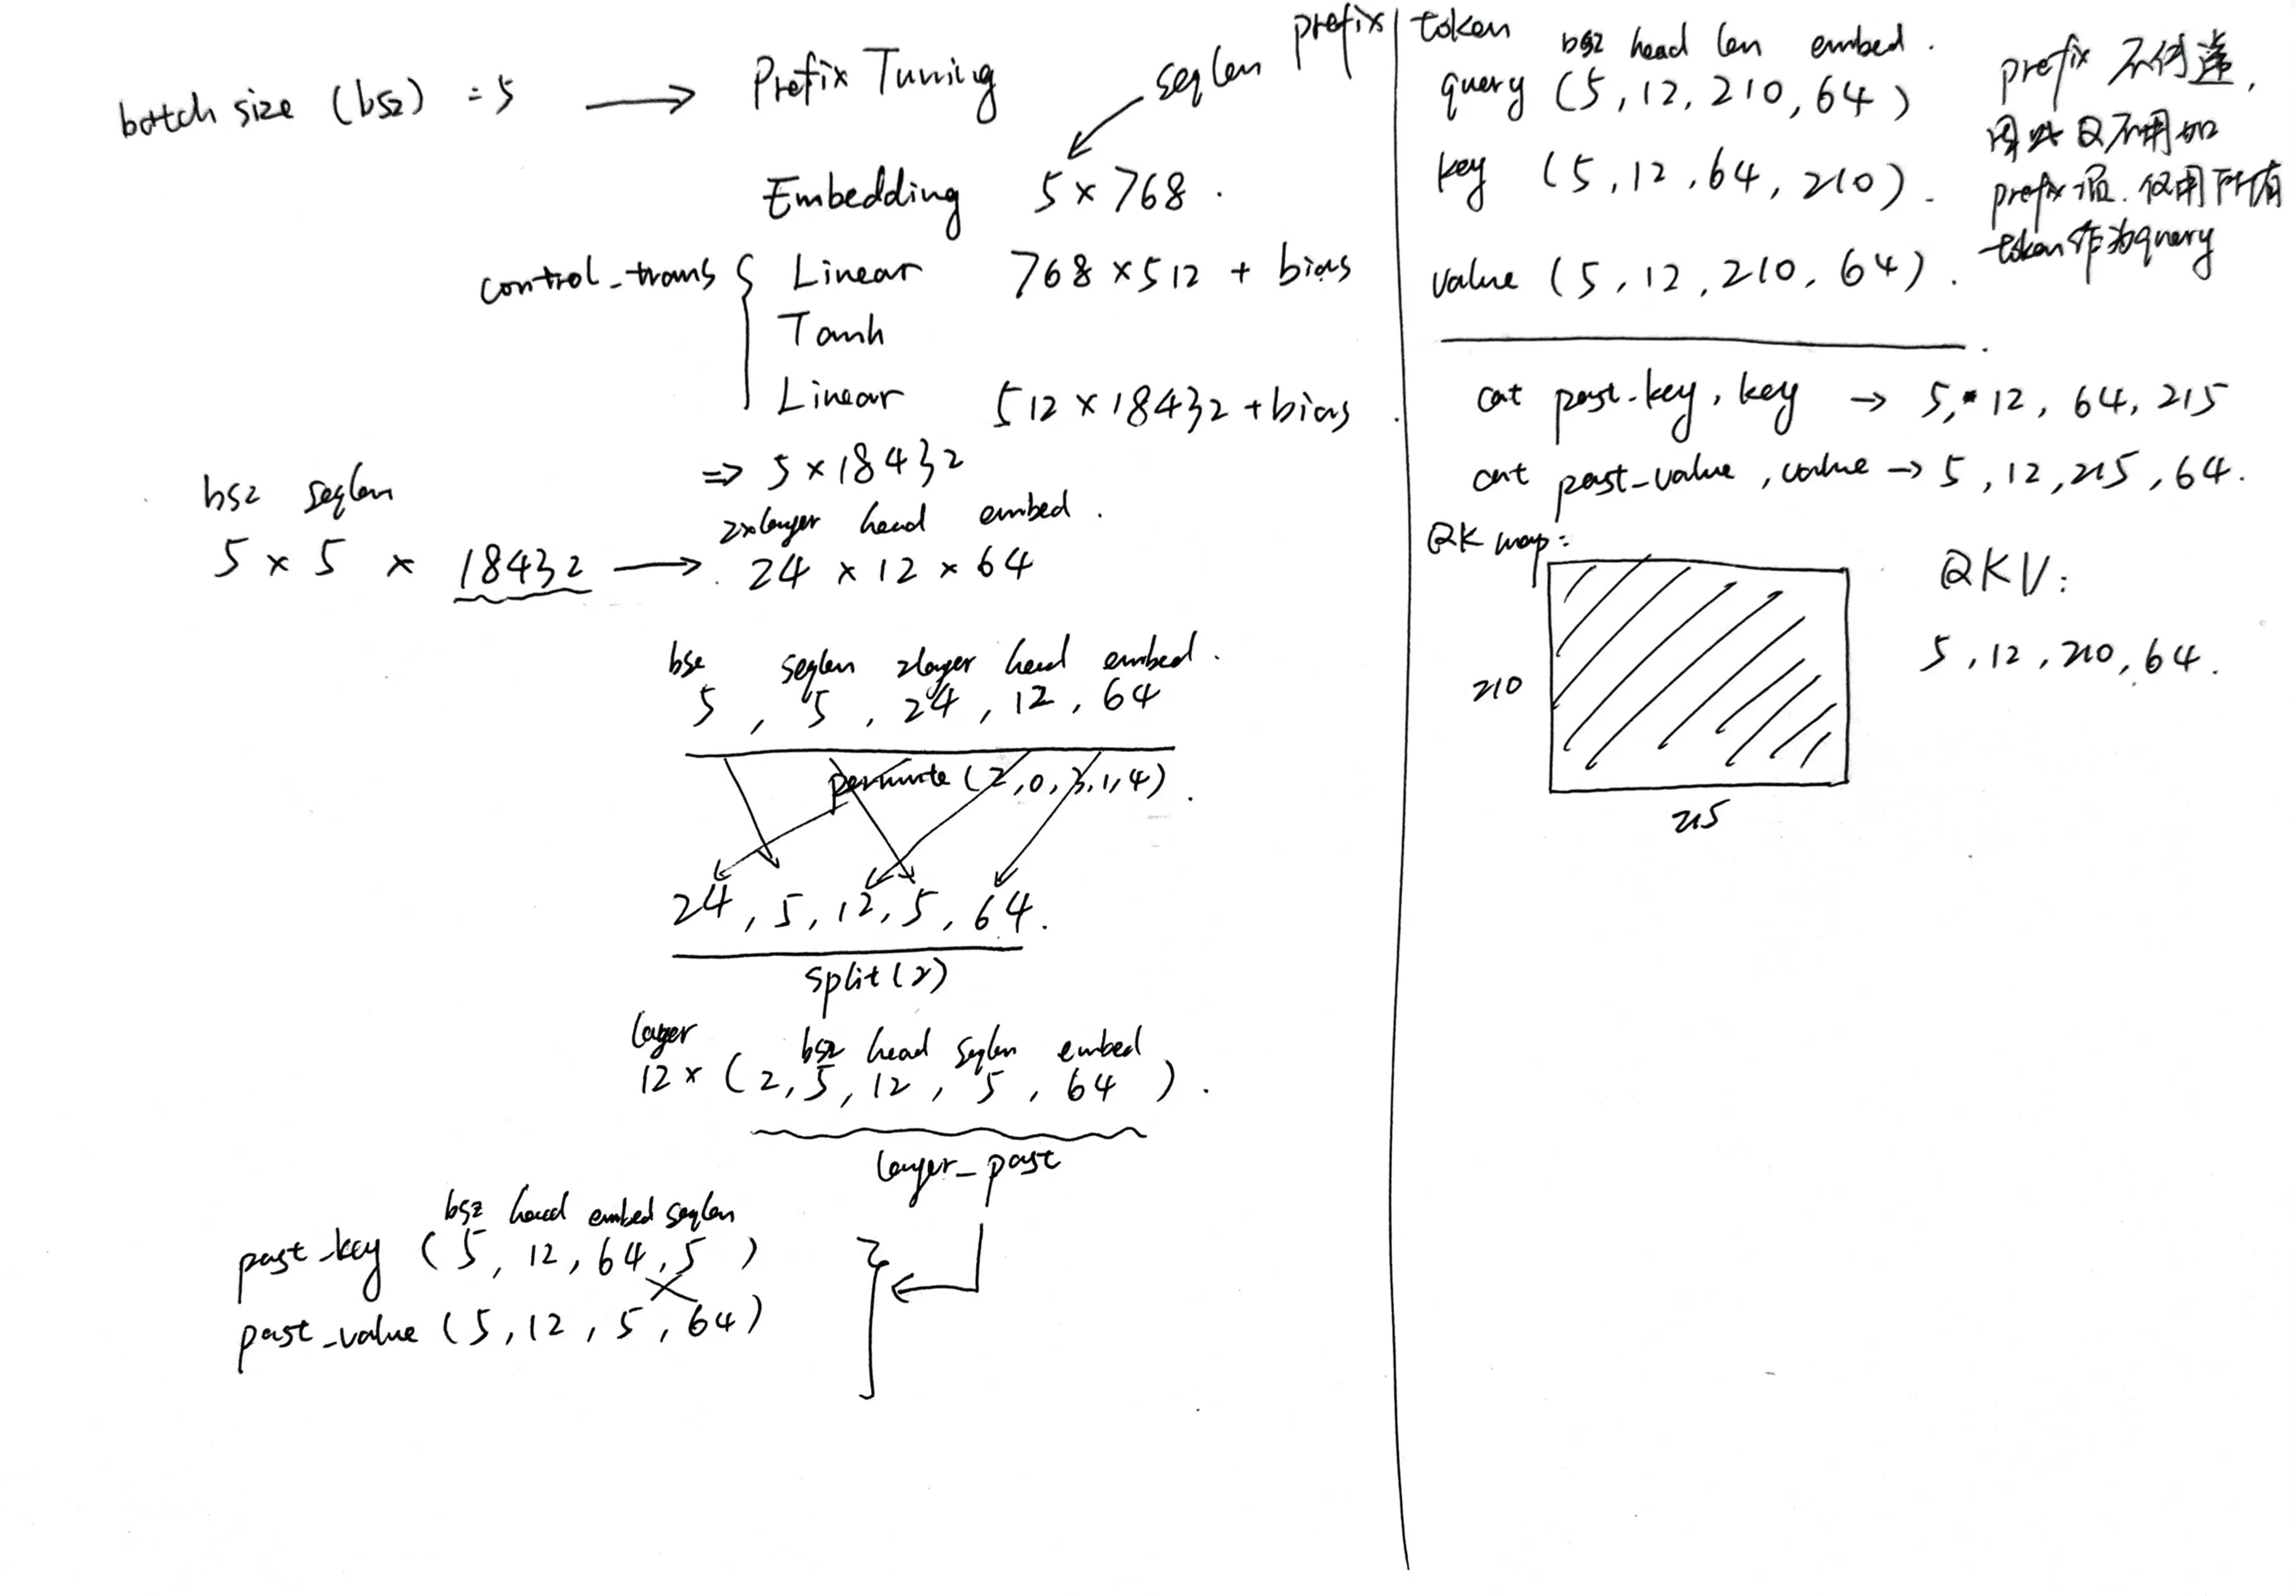 batch size (bsz) = 5 → Prefix Tuning
seqlen
Embedding 5 × 768 .
control_trans { Linear 768 × 512 + bias
Tanh
Linear 512 × 18432 + bias
⇒ 5 × 18432
bsz seqlen
2×layer head embed .
5 × 5 × 18432 → 24 × 12 × 64
bsz seqlen 2layer head embed .
5 , 5 , 24 , 12 , 64
permute (2,0,3,1,4) .
24 , 5 , 12 , 5 , 64 .
split(2)
layer bsz head seqlen embed
12 × ( 2, 5, 12 , 5 , 64 ) .
layer_past
bsz head embed seqlen
past_key ( 5 , 12 , 64 , 5 )
past_value ( 5 , 12 , 5 , 64 )
prefix | token
bsz head len embed .
query (5 , 12 , 210 , 64 )
key ( 5 , 12 , 64 , 210 ) .
value ( 5 , 12 , 210 , 64 ) .
prefix 不传递,
因此Q不用加
prefix项. 仅用所有
token作为query
cat past_key , key → 5, 12 , 64 , 215
cat past_value , value → 5 , 12 , 215 , 64 .
QK map:
210
215
QKV:
5 , 12 , 210 , 64 .